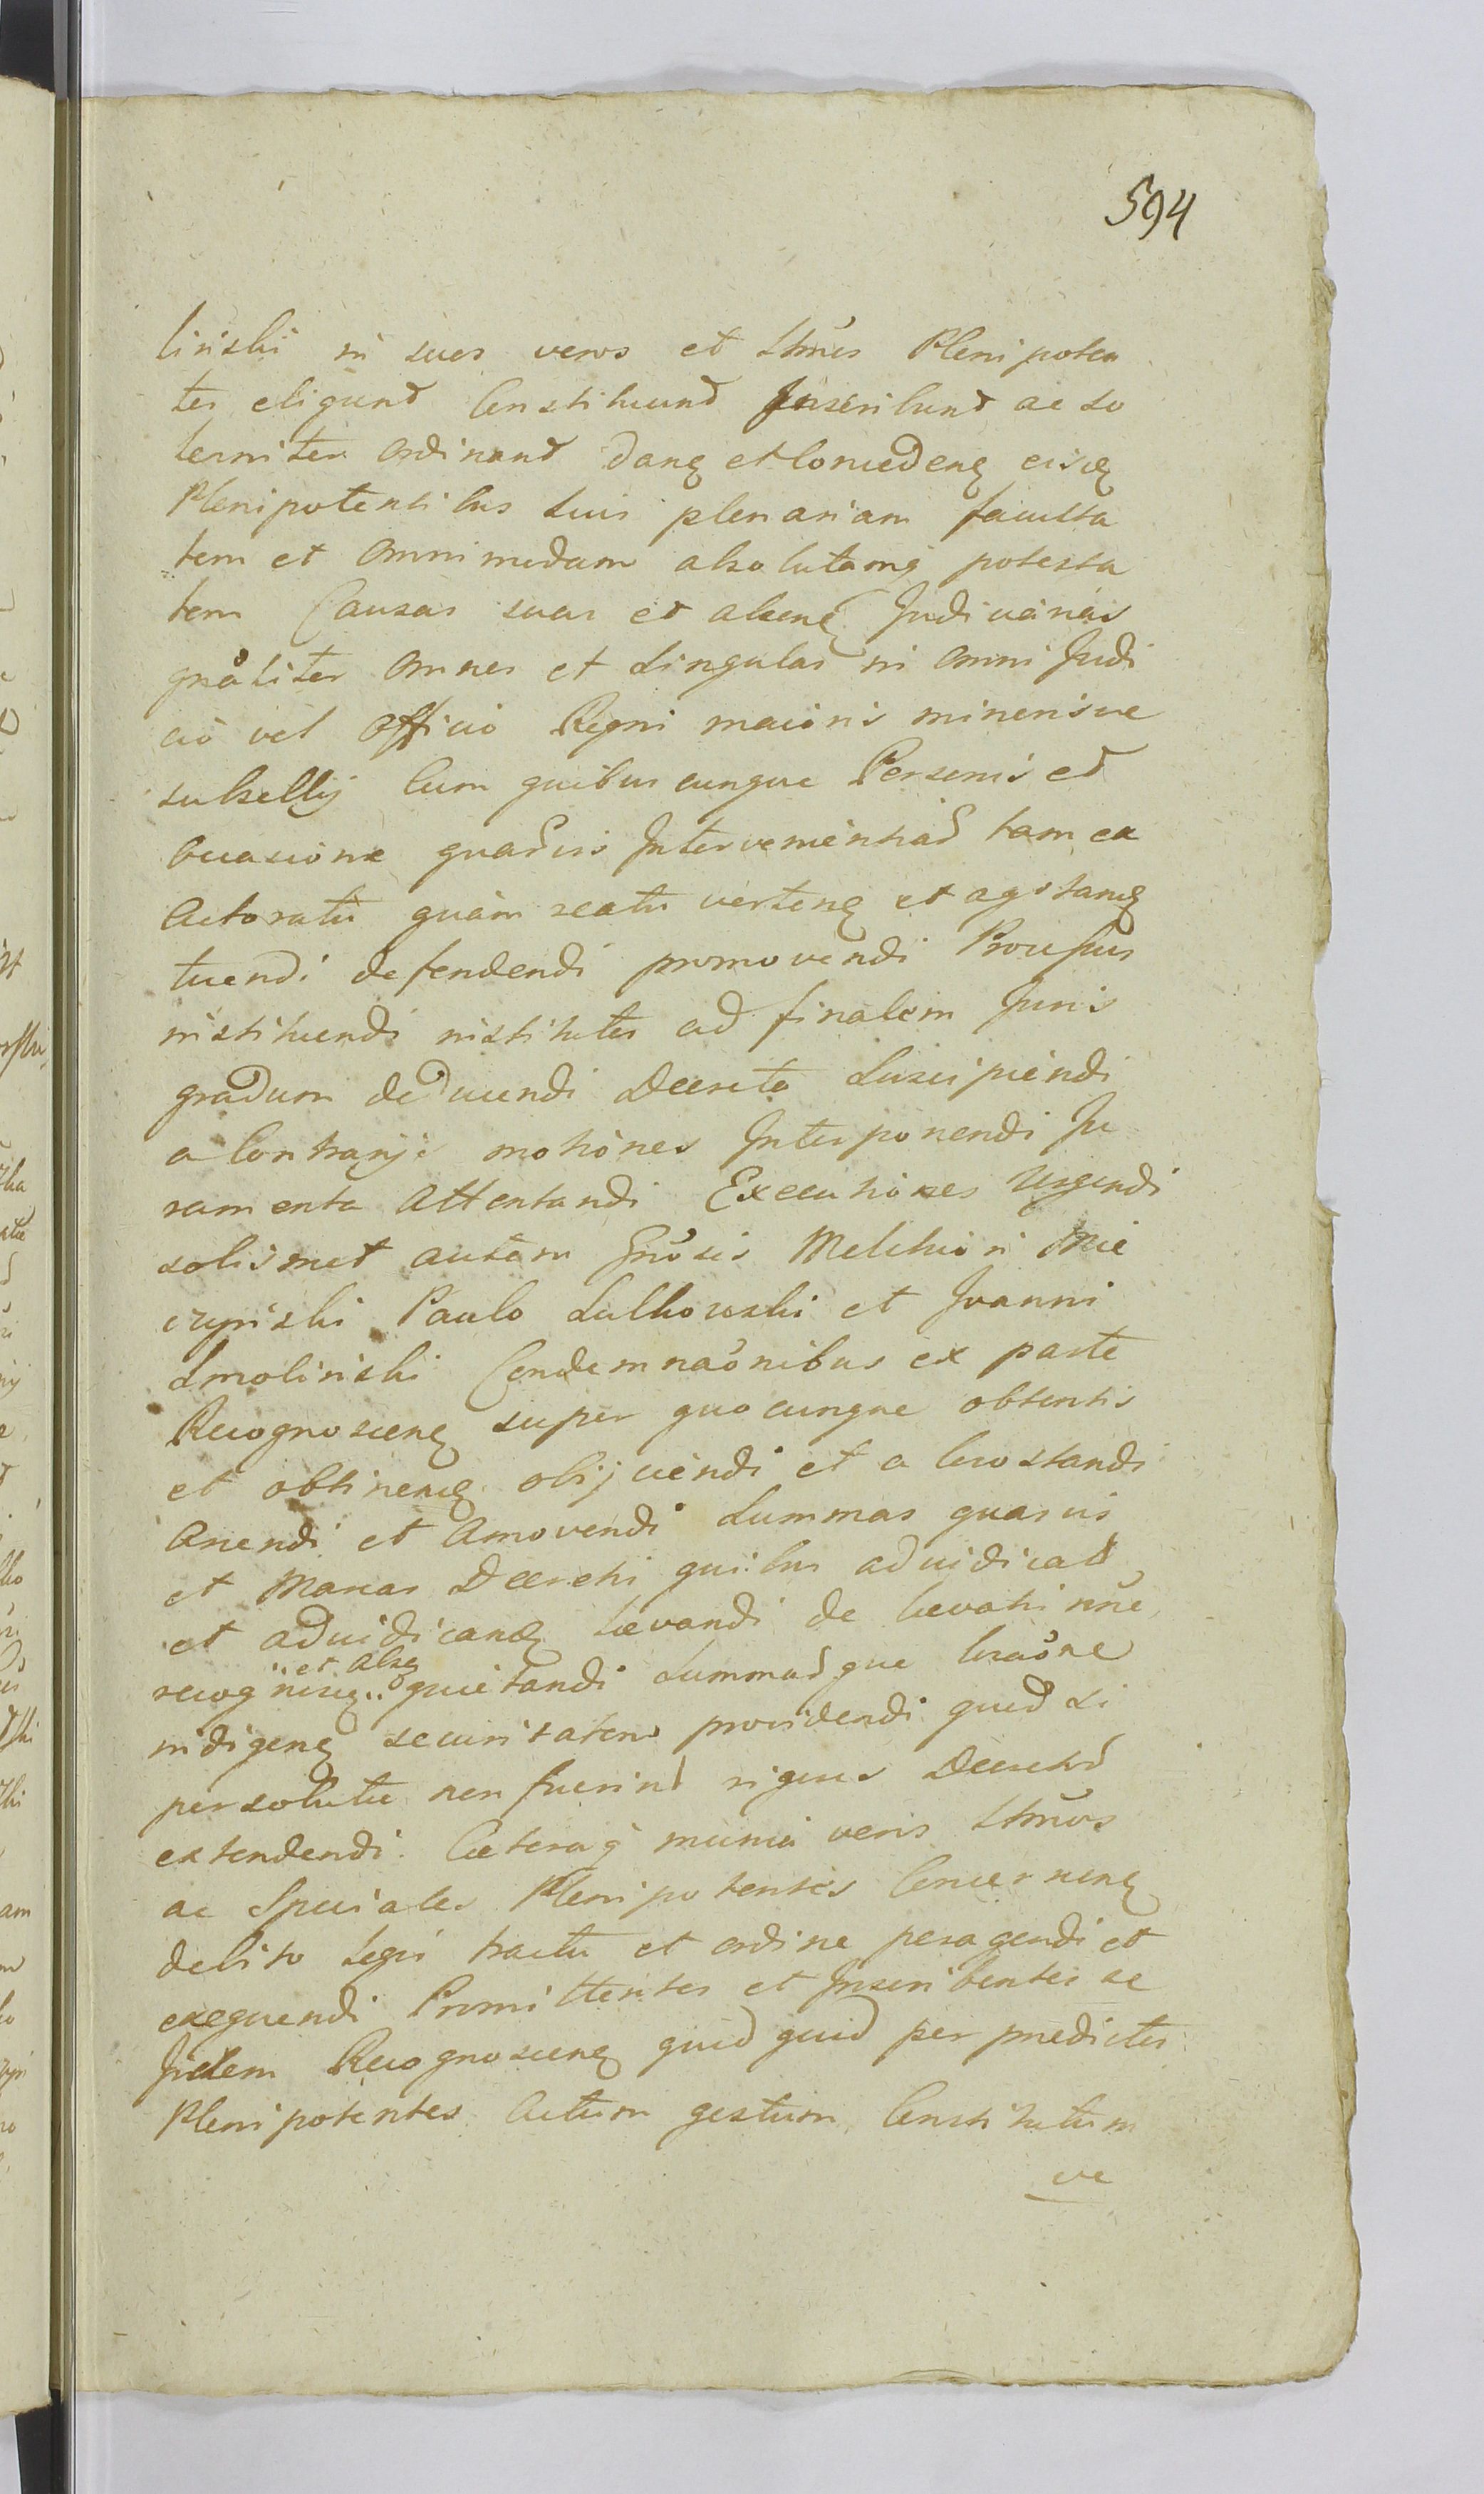 594
linski in suos veros et Lttmos Plenipoten
tes eligunt Constituunt Inscribunt ac so
lemniter ordinant danꝫ et Concedenꝫ eisdꝫ
Plenipotentibus suis plenariam faculta
tem et omnimodam absolutamq̃ potesta
tem Causas suas et absenꝫ Judiciarias
gñaliter omnes et singulas in omni Judi
cio vel officio Regni maioris minorisve
subsellij Cum quibuscunque Personis et
occasione quavis Intervenientiad tam ex
Actoratu quàm reatu vertenꝫ et agitanꝫ
tuendi defendendi promovendi Processus
instituendi institutos ad finalem Juris
gradum deducendi Decreta suscipiendi
a Contrarijs motiones Interponendi Ju
ramenta Attentandi Executiones Urgendi
solismet autem Gñosis Melchiori Mie
czyński Paulo Sulkowski et Joanni
Smolinski Condemnaõnibus ex parte
Recognoscenꝫ super quocunque obtentis
et obtinenꝫ obijciendi et a locostandi
Arcendi et Amovendi Summas quasvis
et Marcas Decreti quibus adiudicat
et adiudicanꝫ Levandi de levatis nñe
et absꝫ
recognoscꝫ quietandi Summasque Locaõne
indigenꝫ securitatem providendi quod si
persolutae non fuerint rigores Decretors
extendendi. Caeteraq̃ munia veros Lttmos
ac Speciales Plenipotentes Concernenꝫ
debito legis tractu et ordine peragendi et
exequendi Promittentes et Inscribentes se
Jidem Recognoscenꝫ quid quid per praedictos
Plenipotentes Actum gestum Constitutum
ve